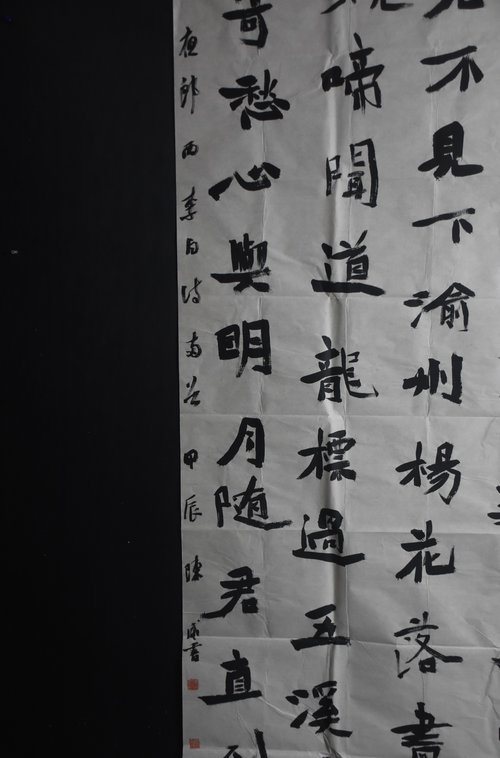 不見下渝州楊花落盡
啼聞道龍標過五溪
寄愁心與明月随君直到
夜郎西李白诗两首甲辰陳書